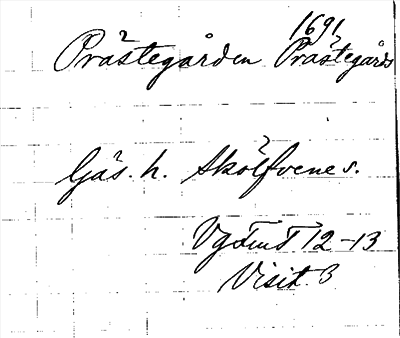 1691
Prästegården Prästegårds
Gäs. h. Skölfvene s.
VgFmT 12-13
Visit. 3